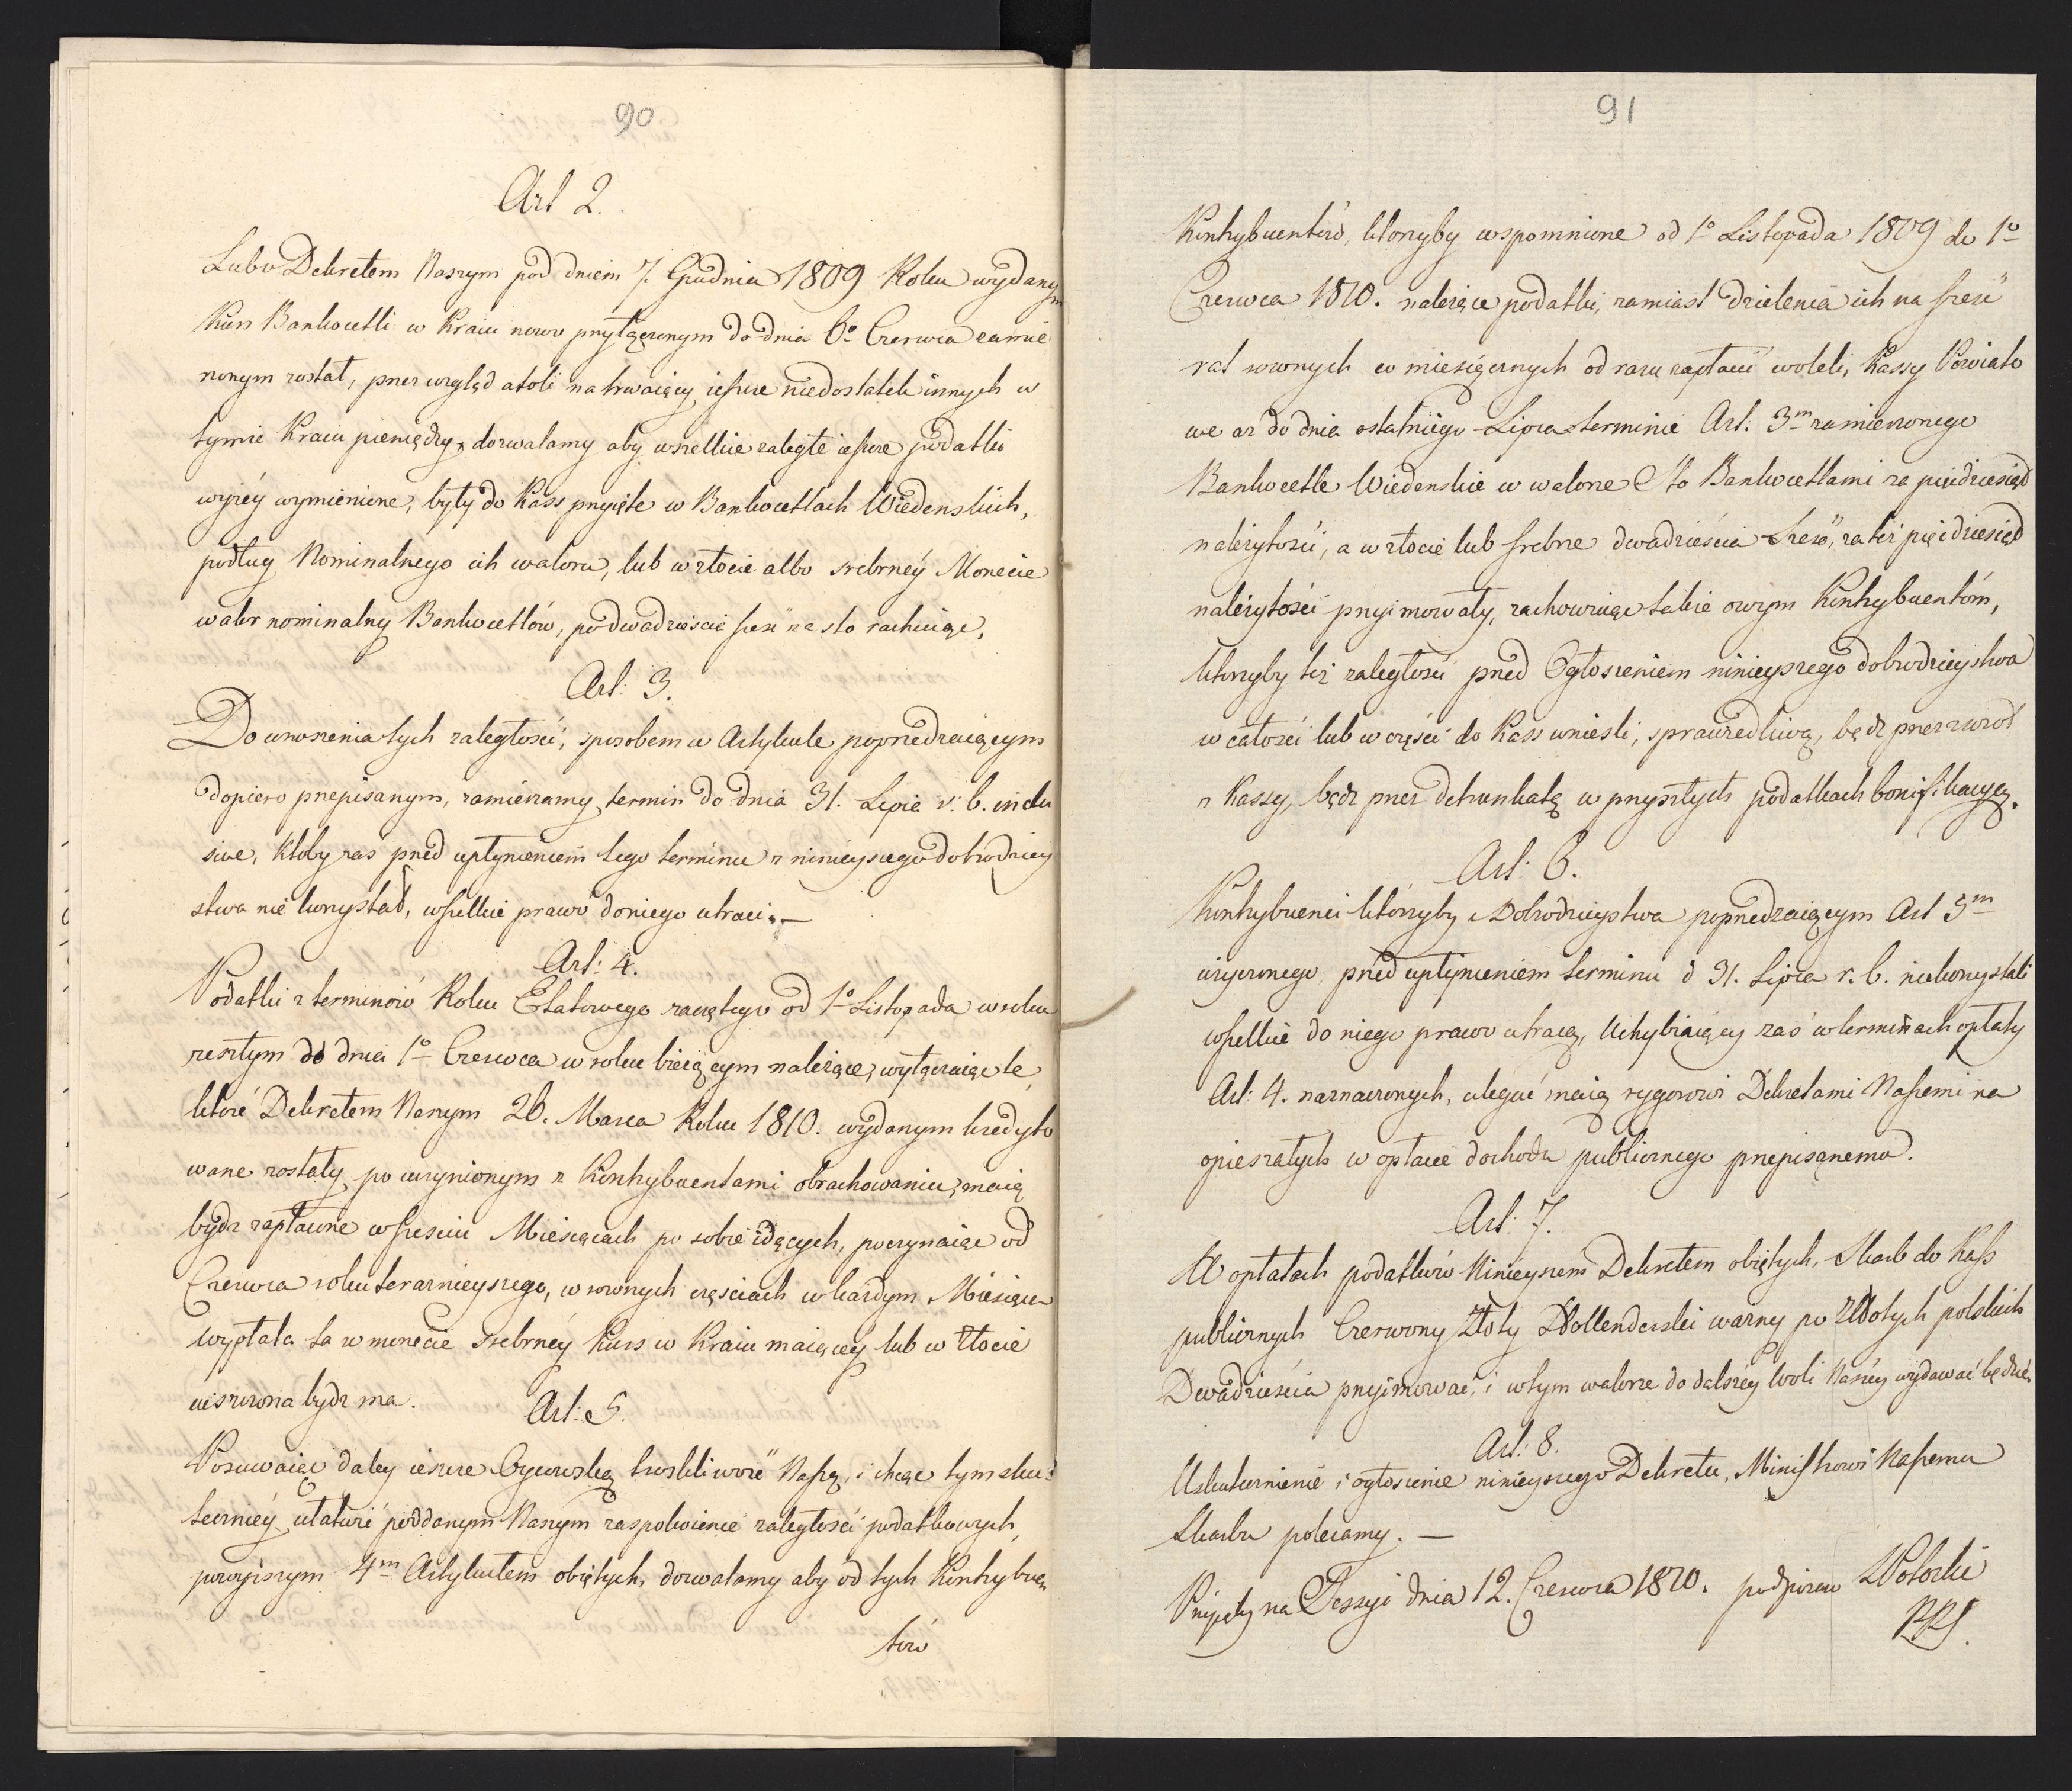 90
Art 2.
Lubo Dekretem Naszym pod dniem 7. Grudnia 1809 Roku wydanym
Kurs Bankocetli w Kraiu nowo przyłączonym do dnia 6o Czerwca zamie
rzonym został, przez wzgląd atoli na trwaiący ieszcze niedostatek innych w
tymże Kraiu pieniędzy, dozwalamy aby wszelkie zaległe ieszcze podatki
wyżéy wymienione, były do Kass przyięte w Bankocetlach Wiedenskich,
podług Nominalnego ich waloru, lub w złocie albo srebrnéy Monecie
walor nominalny Bankocetlów, po dwadzieście sześć za sto rachuiąc,
Art: 3.
Do wnoszenia tych zaległości, sposobem w Artykule poprzedzaiącym
dopiero przepisanym, zamierzamy termin do dnia 31. Lipca r. b. inclu
sive, Ktoby zas przed upłynieniem tego terminu z ninieyszego dobrodziey
stwa nie korzystał, wszelkie prawo do niego utraci. —
Art: 4.
Podatki z terminów Roku Etatowego zaczętego od 1o Listopada w roku
zeszłym do dnia 1o Czerwca w roku bieżącym należące, wyłączaiąc te,
które Dekretem Naszym 26. Marca Roku 1810. wydanym kredyto
wane zostały, po uczynionym z Kontrybuentami obrachowaniu, maią
bydz zapłacone w sześciu Miesiącach po sobie idących, poczynaiąc od
Czerwca roku terazniejszego, w rownych częściach w każdym Miesiącu
wypłata ta w monecie srebrnéy kurs w Kraiu maiącey lub w złocie
uiszczona bydz ma.
Art: 5.
Posuwaiąc daley ieszcze Oycowską troskliwość Naszą, i chcąc tym sku-
teczniéy ułatwić poddanym Naszym zaspokoienie zaległości podatkowych
powyższym 4m Artykułem obiętych, dozwalamy aby od tych Kontrybuen
tów
91
Kontrybuentów, którzyby wspomnione od 1o Listopada 1809 do 1o
Czerwca 1810. należące podatki, zamiast dzielenia ich na sześć
rat rownych co miesięcznych od razu zapłacić woleli, Kassy Powiato
we aż do dnia ostatniego Lipca terminie Art: 3m zamierzonego
Bankocetle Wiedenskie w walorze Sto Bankocetlami za pięćdziesiąt
należytości, a w złocie lub srebrze dwadzieścia sześć, za też pięćdziesiąt
należytości przyimowały, zachowuiąc także owym Kontrybuentóm,
którzyby też zaległości przed Ogłoszeniem ninieyszego dobrodzieystwa
w całości lub w części do Kass wnieśli, sprawiedliwą, bądź przez zwrot
z Kassy, bądź przez detrunkatę w przyszłych podatkach bonifikacyą.
Art: 6.
Kontrybuenci którzyby z Dobrodzieystwa poprzedzaiącym Art 5m
użyczonego przed upłynieniem terminu d 31. Lipca r. b. niekorzystali
wszelkie do niego prawo utracą, Uchybiaiący zaś w terminach opłaty
Art: 4. naznaczonych, ulegać maią rygorowi Dekretami Naszemi na
opieszałych w opłacie dochodu publicznego przepisanemu.
Art: 7.
W opłatach podatków Ninieyszem Dekretem obiętych, Skarb do Kass
publicznych Czerwony Złoty Hollenderski ważny po Złłotych polskich
Dwadzieścia przyimować, i w tym walorze do dalszéy woli Naszéy wydawać będzie,
Art: 8.
Uskutecznienie i ogłoszenie ninieyszego Dekretu, Ministrowi Naszemu
Skarbu polecamy. —
Przyięty na Sessyi dnia 12. Czerwca 1810. podpisano Potocki